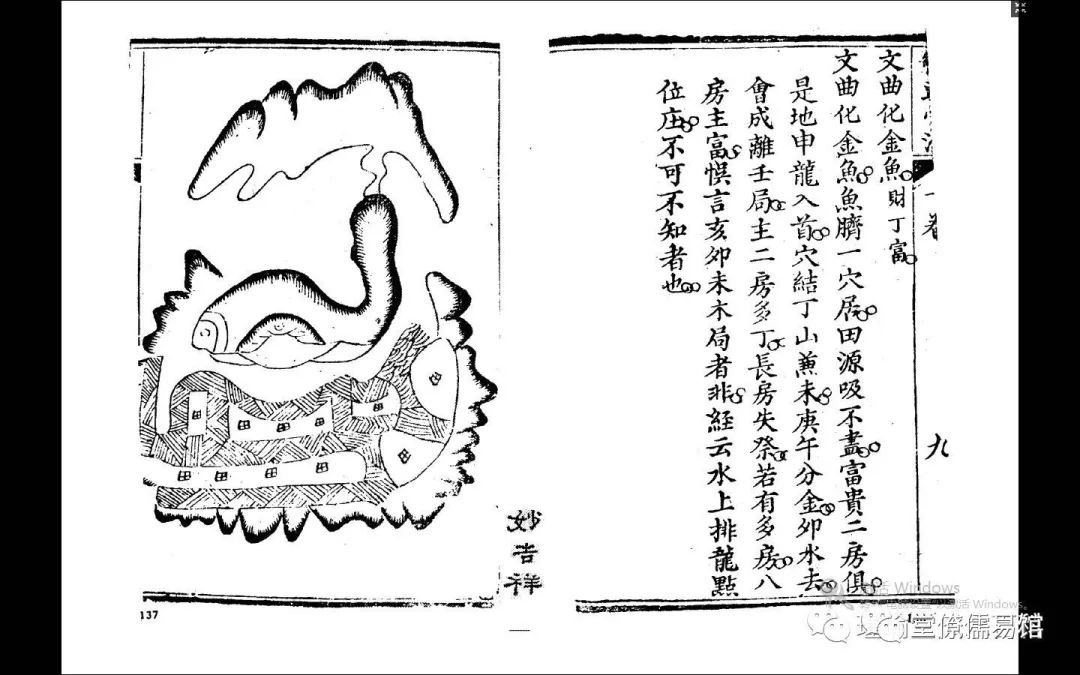 文曲化金魚財丁富
文曲化金魚魚臍一穴居田源吸不盡富貴二房俱
是地申龍入首穴結丁山兼未庚午分金卯水去
會成離壬局主二房多丁長房失祭若有多房八
房主富悞言亥卯未木局者非經云水上排龍點
位庄不可不知者也
九
妙吉祥
137
激活 Windows
Windows
堂僚儒易馆